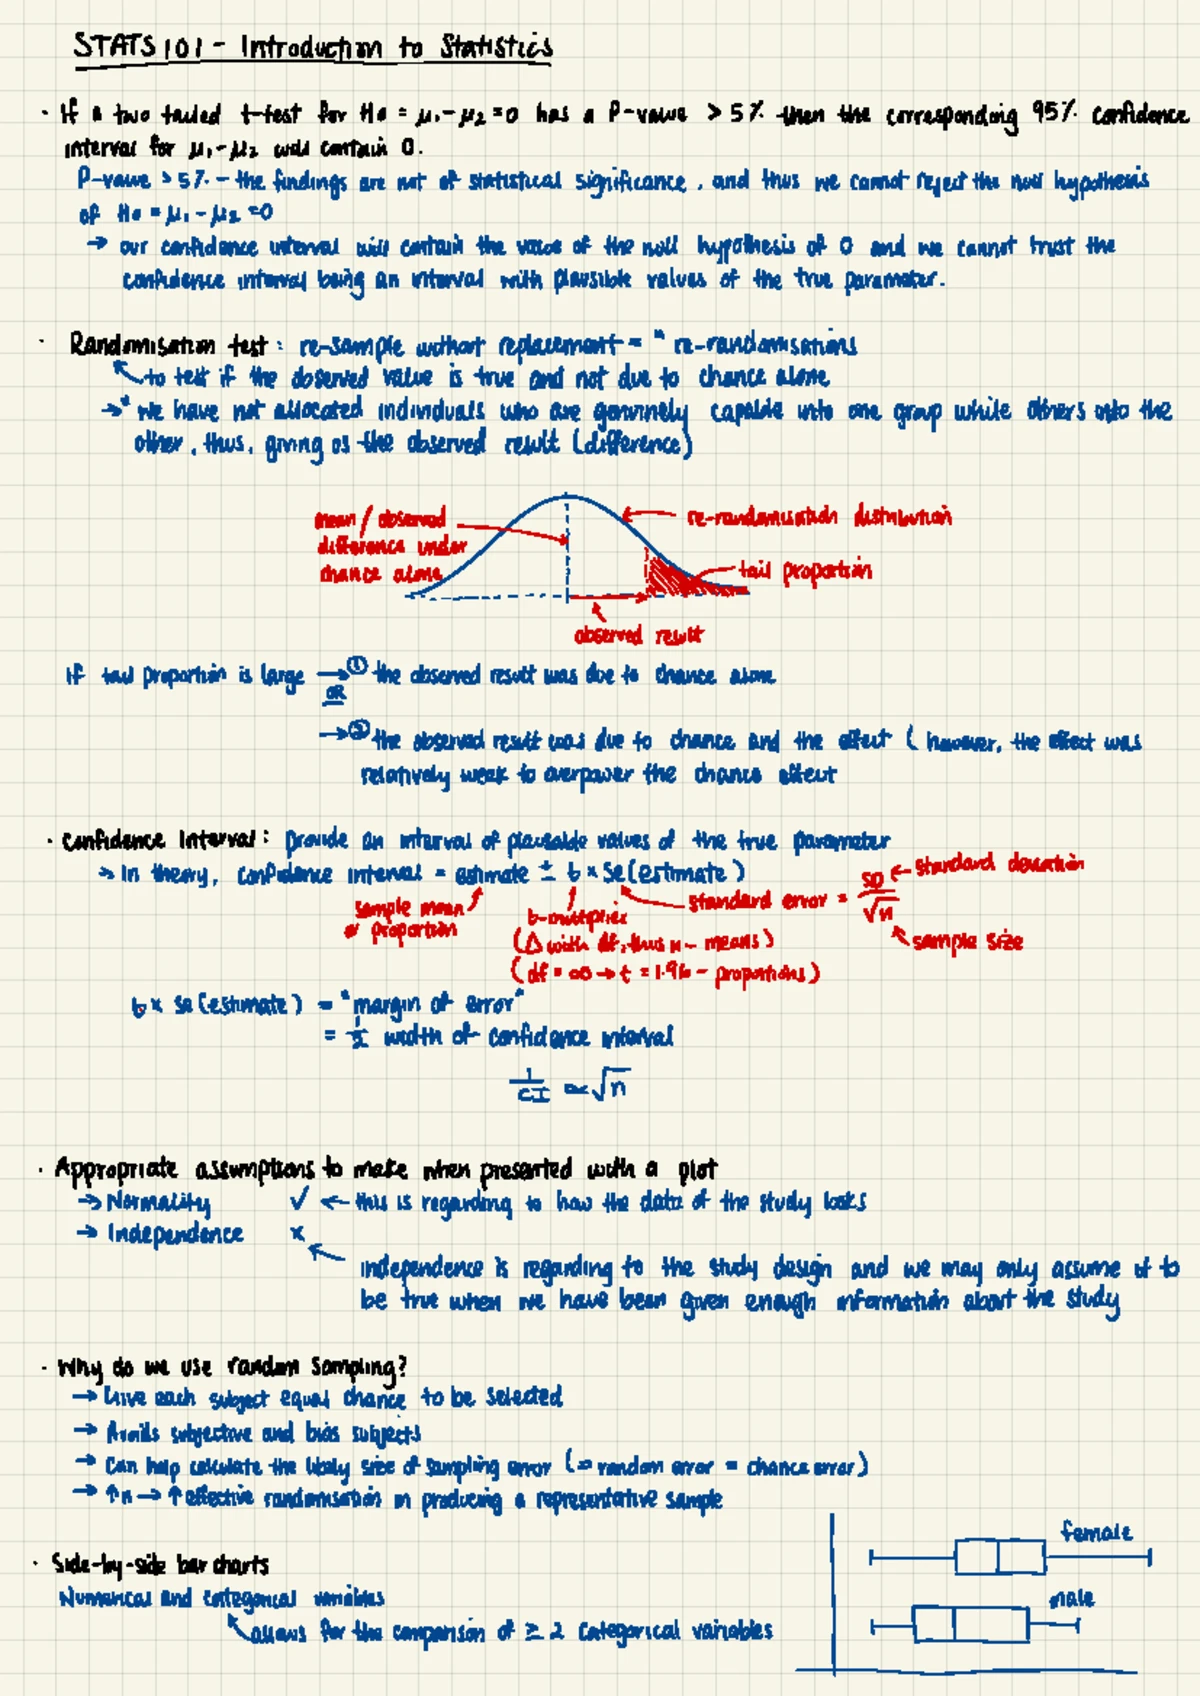 STATS 101 - Introduction to Statistics
· If a two tailed t-test for H₀ = μ₁-μ₂ =0 has a P-value > 5% then the corresponding 95% confidence
interval for μ₁-μ₂ will contain 0.
P-value > 5% - the findings are not of statistical significance, and thus we cannot reject the null hypothesis
of H₀ = μ₁ - μ₂ =0
→ our confidence interval will contain the value of the null hypothesis of 0 and we cannot trust the
confidence interval being an interval with plausible values of the true parameter.
· Randomisation test: re-sample without replacement = " re-randomisations
to test if the observed value is true and not due to chance alone
→" we have not allocated individuals who are genuinely capable into one group while others into the
other, thus, giving us the observed result (difference)
mean / observed
difference under
chance alone
re-randomisation distribution
tail proportion
observed result
If tail proportion is large → ① the observed result was due to chance alone
OR
→ ② the observed result was due to chance and the effect ( however, the effect was
relatively weak to overpower the chance effect
· Confidence Interval: provide an interval of plausable values of the true parameter
→ In theory, confidence interval = estimate ± t × se(estimate)
sample mean
or proportion
t-multiplier
(Δ with df, thus n - means)
(df = ∞ → t = 1.96 - proportions)
standard error = SD/√n
← standard deviation
sample size
t × se(estimate) = "margin of error"
= ½ width of confidence interval
1/CI ∝ √n
· Appropriate assumptions to make when presented with a plot
→ Normality ✓ ← this is regarding to how the data of the study looks
→ Independence x
independence is regarding to the study design and we may only assume it to
be true when we have been given enough information about the study
· Why do we use random sampling?
→ Give each subject equal chance to be selected
→ Avoids subjective and bias subjects
→ Can help calculate the likely size of sampling error (= random error = chance error)
→ ↑n → ↑ effective randomisation in producing a representative sample
· Side-by-side bar charts
Numerical and categorical variables
allows for the comparison of ≥ 2 categorical variables
female
male